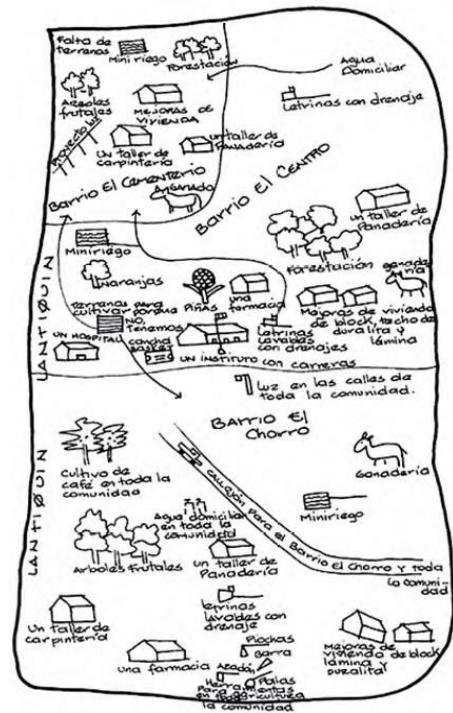 Falta de
terrenos
Mini riego
Forestación
Agua
Domiciliar
Arboles
frutales
MEJORAS DE
VIVIENDA
Letrinas con drenaje
Proyecto luz
UN taller de
carpintería
un taller de
PANADERÍA
Barrio El Cementerio
Barrio El Centro
un taller de
Panadería
Miniriego
LANTIQUIN
Naranjas
Piñas
Forestación
terrenos para
cultivar porque
NO
Tenemos
una
farmacia
Mejoras de vivienda
de block, techo de
duralita y
lámina
UN HOSPITAL
cancha
basket
Letrinas
lavables
con drenajes
UN INSTITUTO con carreras
Luz en las calles de
toda la comunidad.
BARRIO El
Chorro
LANTIQUIN
Cultivo de
café en toda la
comunidad
Ganadería
CALLEJÓN Para el Barrio El Chorro y toda
la comuni-
dad
Miniriego
Agua domiciliar
en toda la
comunidad
Arboles frutales
un taller de
Panadería
letrinas
lavables con
drenaje
Un taller de
carpintería
una farmacia
Piochas
Barra
Azadón
Palas
la comunidad
Mejoras de
vivienda de block
lámina y
duralita